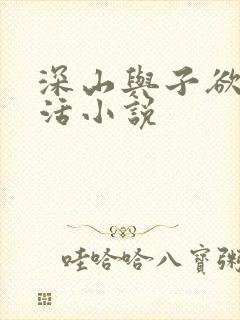 深山與子欲
活小說
哇哈哈八寶粥